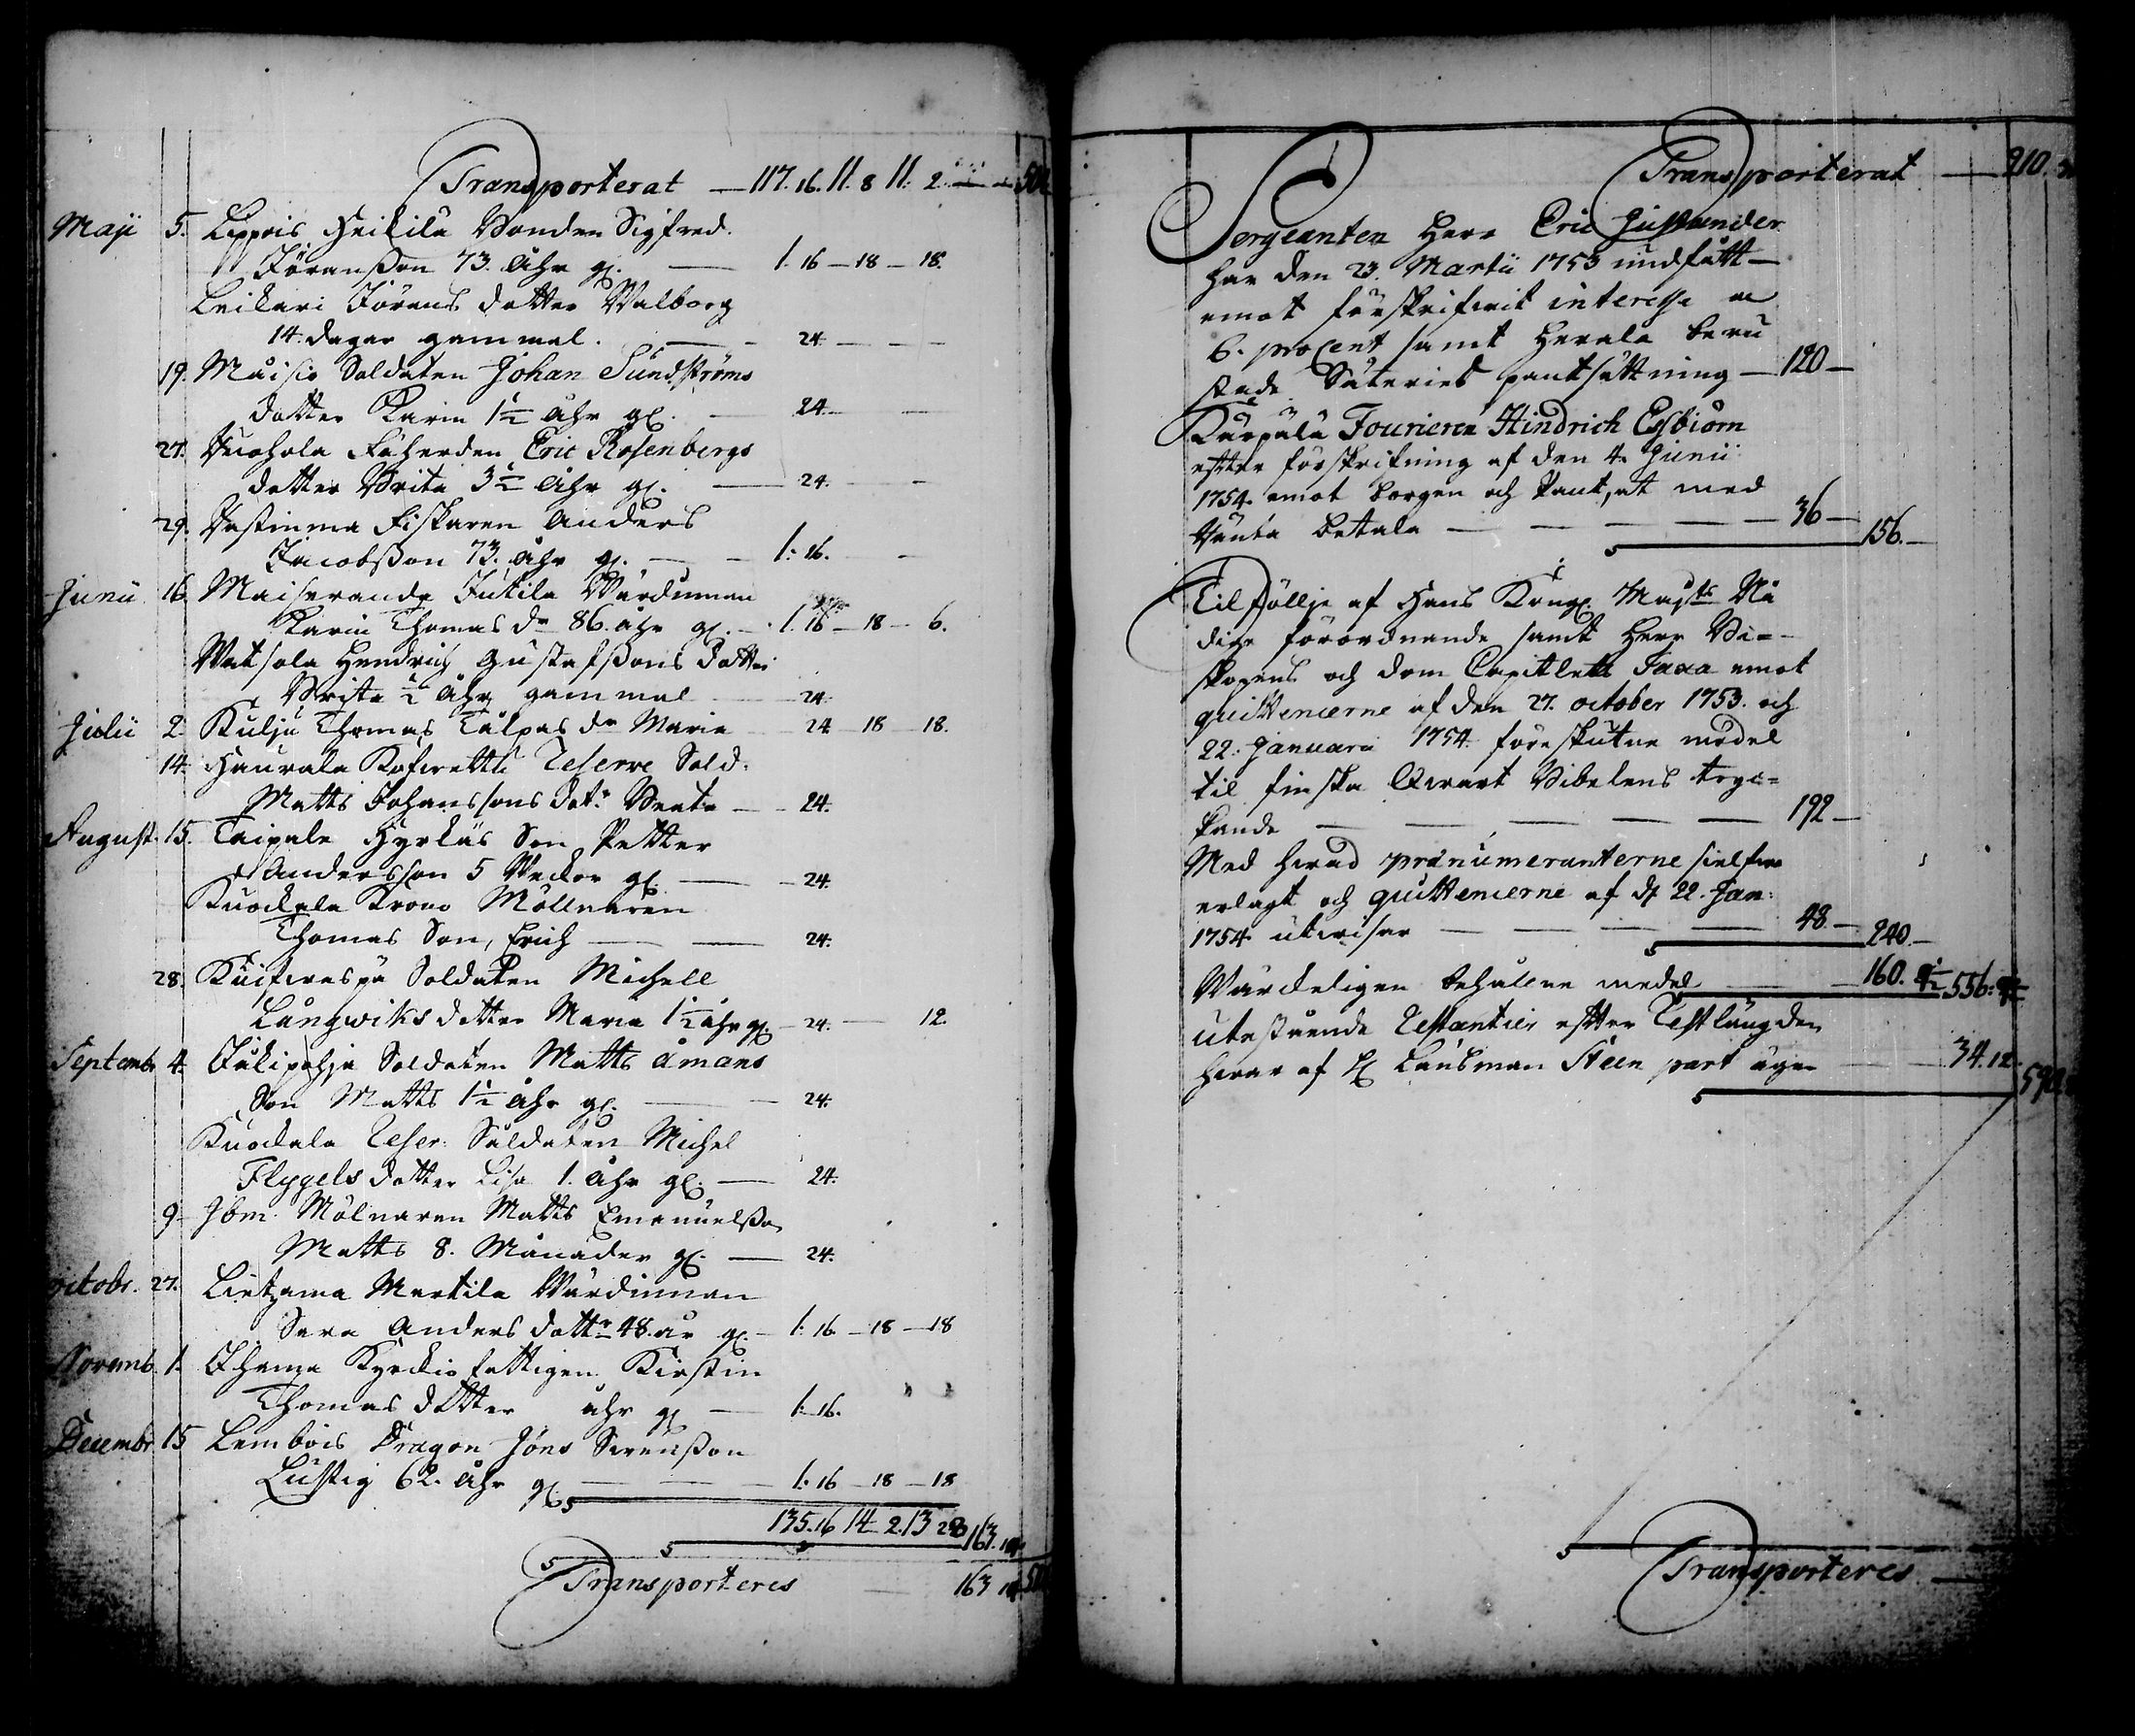 Transporterat — 117. 16. 11. 8 11. 2
Maji 5. Lippois Heikilä Bonden Sigfred
Jöransson 73. åhr gl. — 1. 16 — 18 — 18.
Leikari Jörens dotter Walborg
14. dagar gammal. — 24. — —
19. Maisio Soldaten Johan Sundströms
dotter Karin 1½ åhr gl. — 24. —
27. Fäherden Eric Rosenbergs
dotter Brita 3½ åhr gl. — 24. —
29. Fiskaren Anders
Jacobsson 73. åhr gl. — 1: 16. —
Junii 16 Jutila Värdinnan
Karin Thomas dr 86. åhr gl. — 1. 16 — 18 — 6.
Hendrich Gustafssons dotter
Brita ½ åhr gammal 24.
Julii 2. Kulju Thomas Talpas dr Maria 24 — 18 — 18.
14. Haurala Reserve Sold.
Matts Johanssons dotr Beata — 24.
August. 15. Taipale Hyrkäs Son Petter
Andersson 5 Veckor gl. — 24.
Kuockala Krono Möllnaren
Thomas Son, Erich — — 24.
28. Soldaten Michell
Långwiks dotter Maria 1½ åhr gl. — 24. — 12.
Septemb 4. Jälkipohja Soldaten Matts Åmans
Son Matts 1½ åhr gl. — 24.
Kuockala Reser: Soldaten Michel
Flygels dotter Lisa 1. åhr gl. — 24.
9. Ibm. Mölnaren Matts Emanuelsson
Matts 8. Månader gl. — 24.
octobr. 27. Martila Värdinnan
Sara Anders dottr 48. år gl. — 1: 16 — 18 — 18
Novemb. 1. Kyrckio fattigen Kirstin
Thomas dotter åhr gl — 1: 16.
Decembr 15 Lembois Dragon Jöns Svensson
Lustig 62. åhr gl. — 1: 16 — 18 — 18
135. 16 14 2. 13 163.
Transporteres — 163
Transporterat — 210.
Sergeanten Herr Eric Justander
har den 23. Martii 1753 undfått
emot förskrifvit interesse a
6. procent samt Herrala
Säteries pantsättning — 120 —
Karpala Fourieren Hindrich Esbiörn
efter förskrifning af den 4. Junii
1754. emot borgen och Pant, at med
Ränta betala — — — — 36 — 156. —
Til föllje af Hans Kongl. Majts Nå
dige förordnande samt Herr Bi-
skopens och Dom Capitlets Taxa emot
quittencerne af den 27. october 1753. och
22. Januarii 1754. förskutne medel
til finska Qvart Bibelens tryc-
kande — — — — — 192 —
Med hvad prænumeranterne sielfve
erlagt och quittencerne af d 22. Jan:
1754 utvisar — — — — 48. — 240. —
Wärckeligen behålne medel — 160. 556:
utestående Restantier efter Restlängden
hvaraf Länsman Steen part äger — 34. 12.
590
Transporteres —